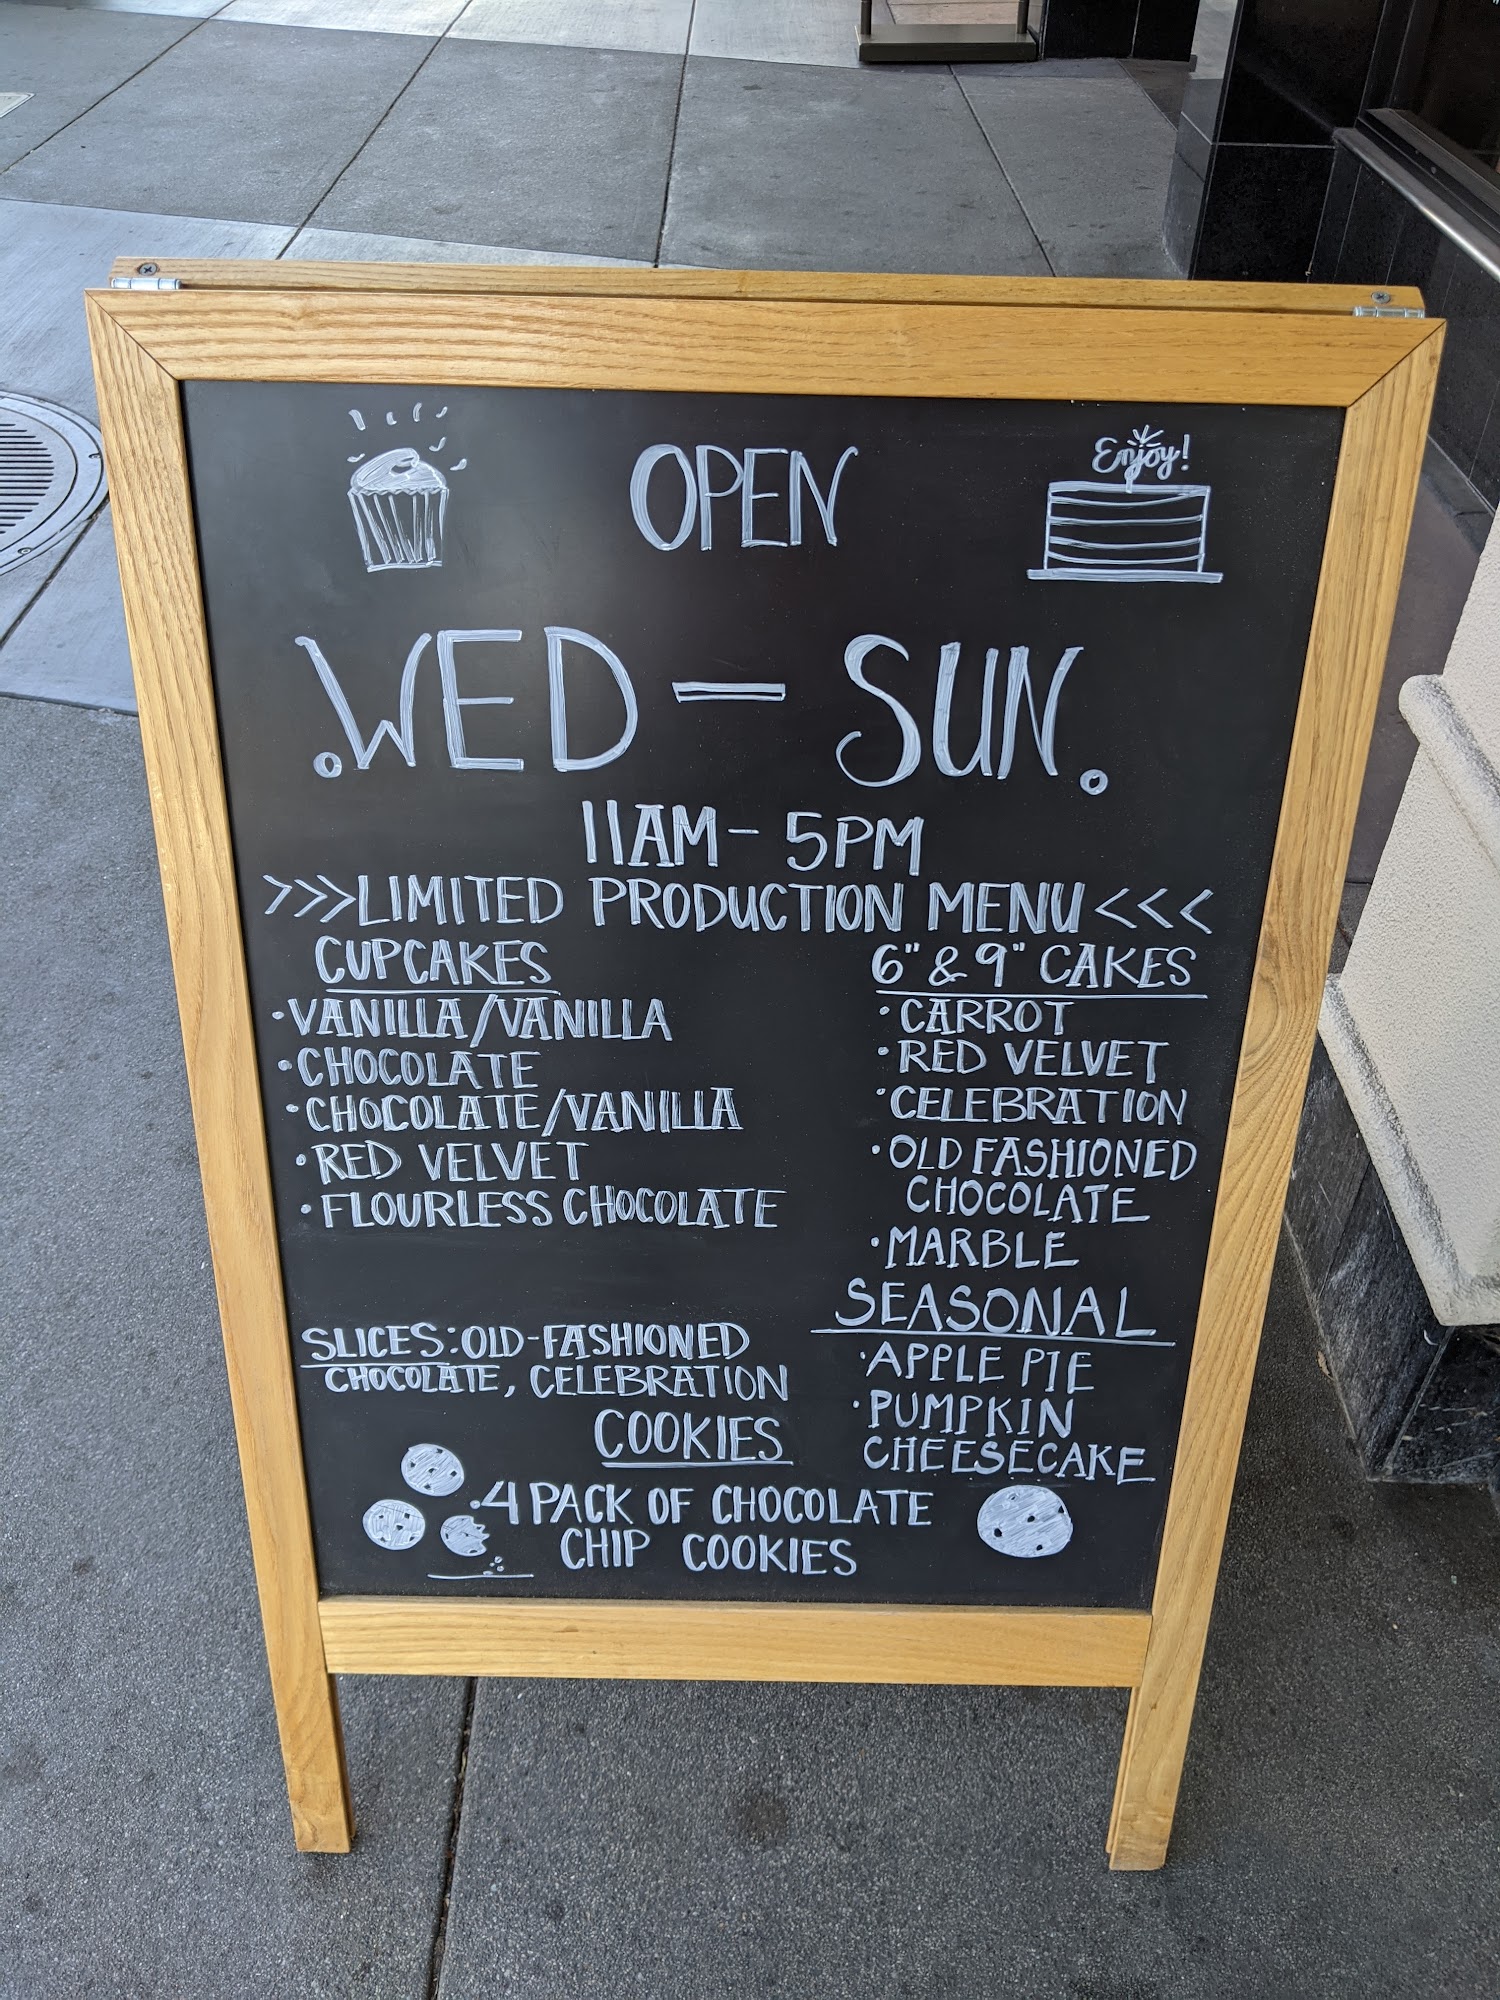 OPEN
Enjoy!
WED - SUN.
11AM - 5PM
>>>LIMITED PRODUCTION MENU<<<
CUPCAKES
•VANILLA/VANILLA
•CHOCOLATE
•CHOCOLATE/VANILLA
•RED VELVET
•FLOURLESS CHOCOLATE
6" & 9" CAKES
•CARROT
•RED VELVET
•CELEBRATION
•OLD FASHIONED
CHOCOLATE
•MARBLE
SEASONAL
•APPLE PIE
•PUMPKIN
CHEESECAKE
SLICES: OLD-FASHIONED
CHOCOLATE, CELEBRATION
COOKIES
•4 PACK OF CHOCOLATE
CHIP COOKIES